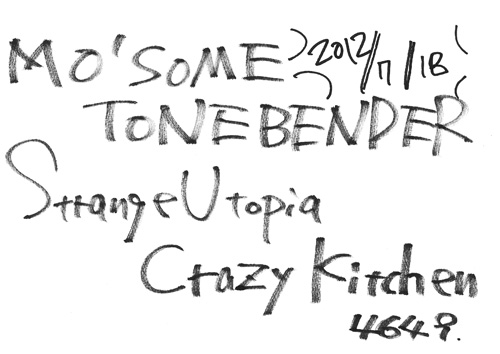 MO'SOME 2012/7/18
TONEBENDER
Strange Utopia
Crazy Kitchen
4649.